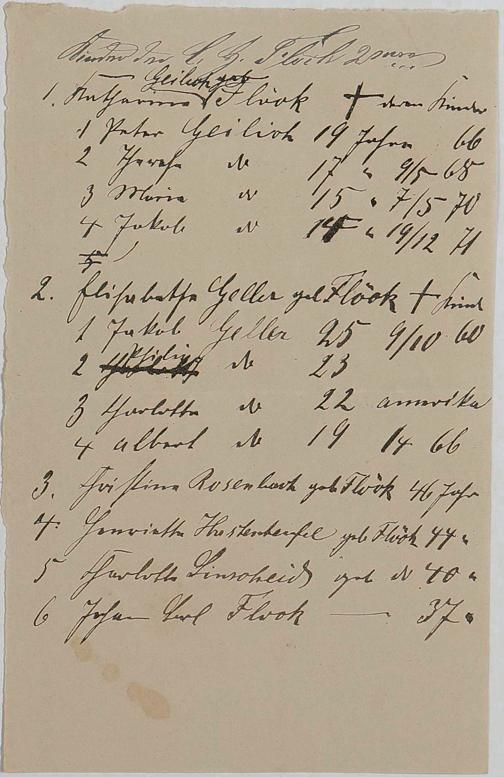 Kinder der C. H. Flöck 2
Geilich geb
1. Katharina Flöck † deren Kinder
1 Peter Geilich 19 Jahre 66
2 Therese do 17 " 9/5 68
3 Maria do 15 " 7/5 70
4 Jakob do 14 " 19/12 71
5
2. Elisabetha Geller geb Flöck † Kind
1 Jakob Geller 25 9/10 60
2 Philip do 23
3 Charlotte do 22 Amerika
4 Albert do 19 14 66
3. Christina Rosenbach geb Flöck 46 Jahr
4. Henrietta geb Flöck 44 "
5 Charlotte Linscheid geb do 40 "
6 Johann Carl Flöck — 37 "